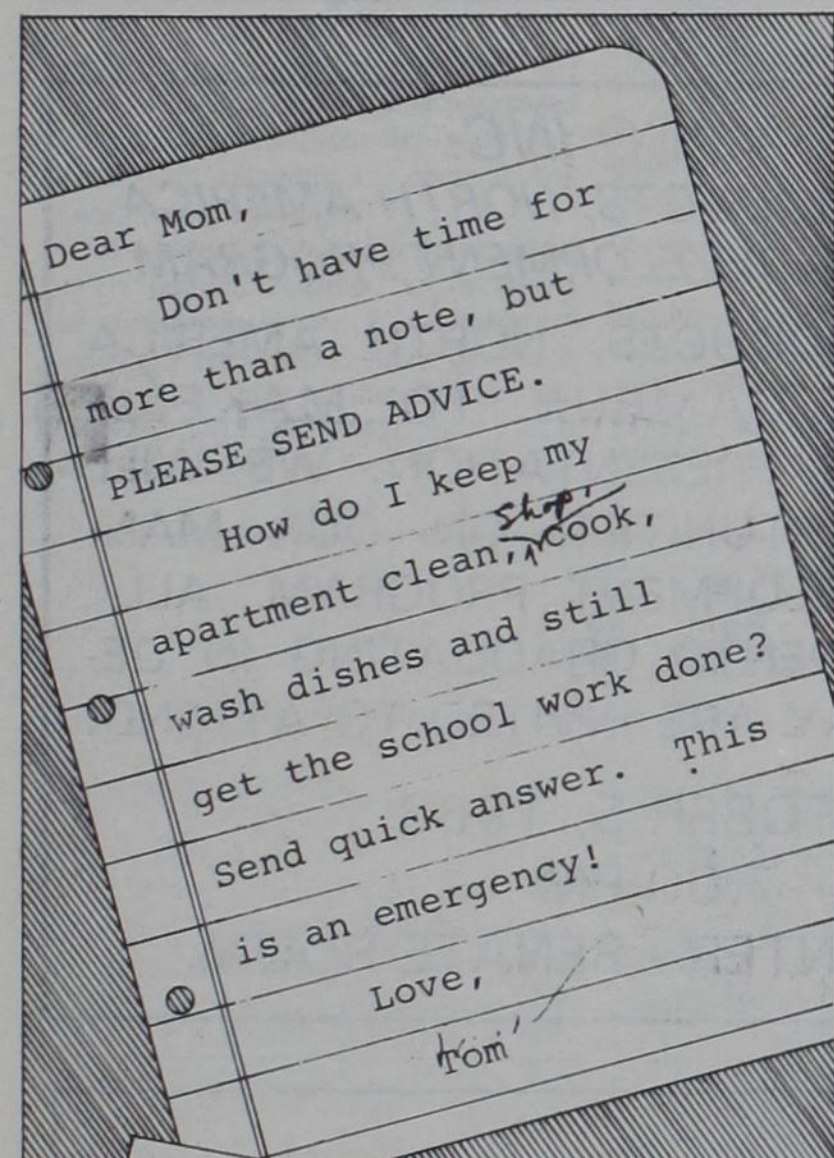 Dear Mom,
Don't have time for
more than a note, but
PLEASE SEND ADVICE.
How do I keep my
shop,
apartment clean, cook,
wash dishes and still
get the school work done?
Send quick answer. This
is an emergency!
Love,
Tom